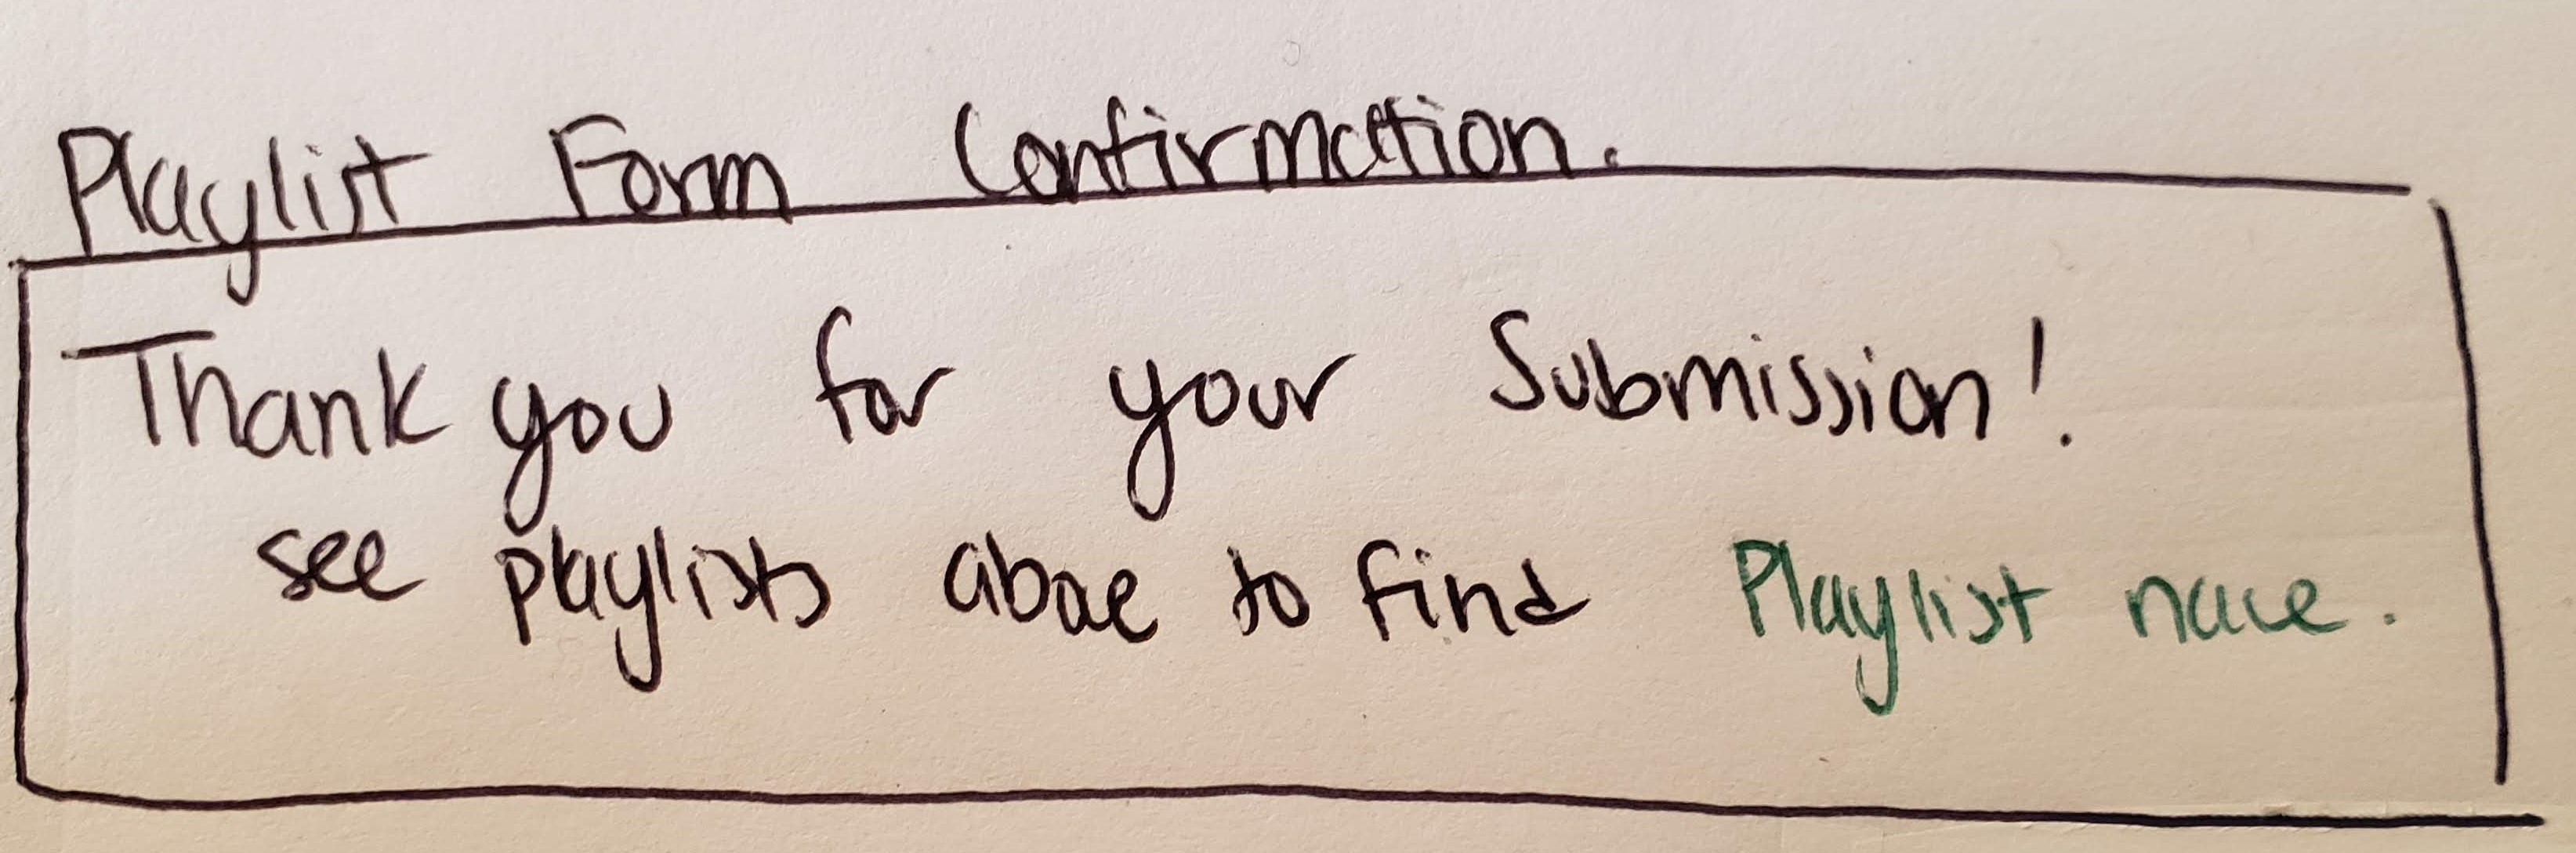 Playlist Form Confirmation.
Thank you for your Submission!
see playlists above to find Playlist name.